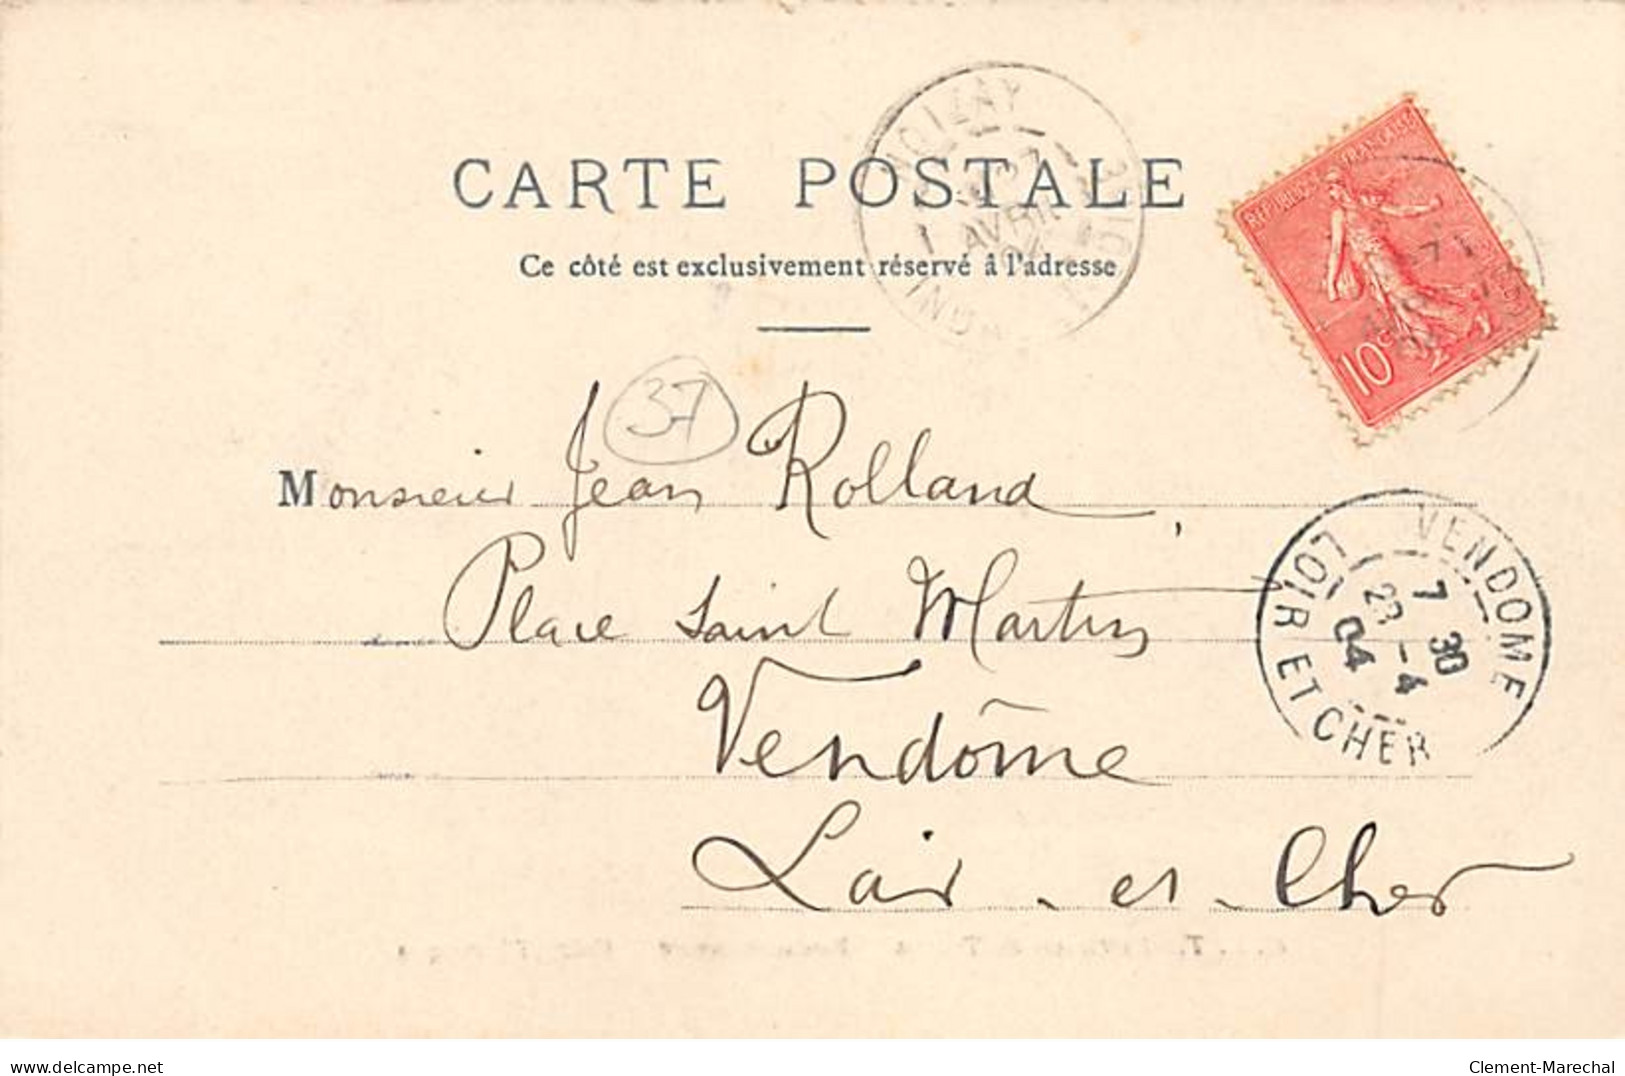 CARTE POSTALE
Ce côté est exclusivement réservé à l'adresse
NOIZAY
AVRIL
04
INDRE
LOIRE
RÉPUBLIQUE FRANÇAISE
10c
37
Monsieur Jean Rolland,
Place Saint Martin
Vendôme
Loir-et-Cher
VENDOME
7 30
28 - 4
04
LOIR ET CHER
www.delcampe.net
Clement-Marechal